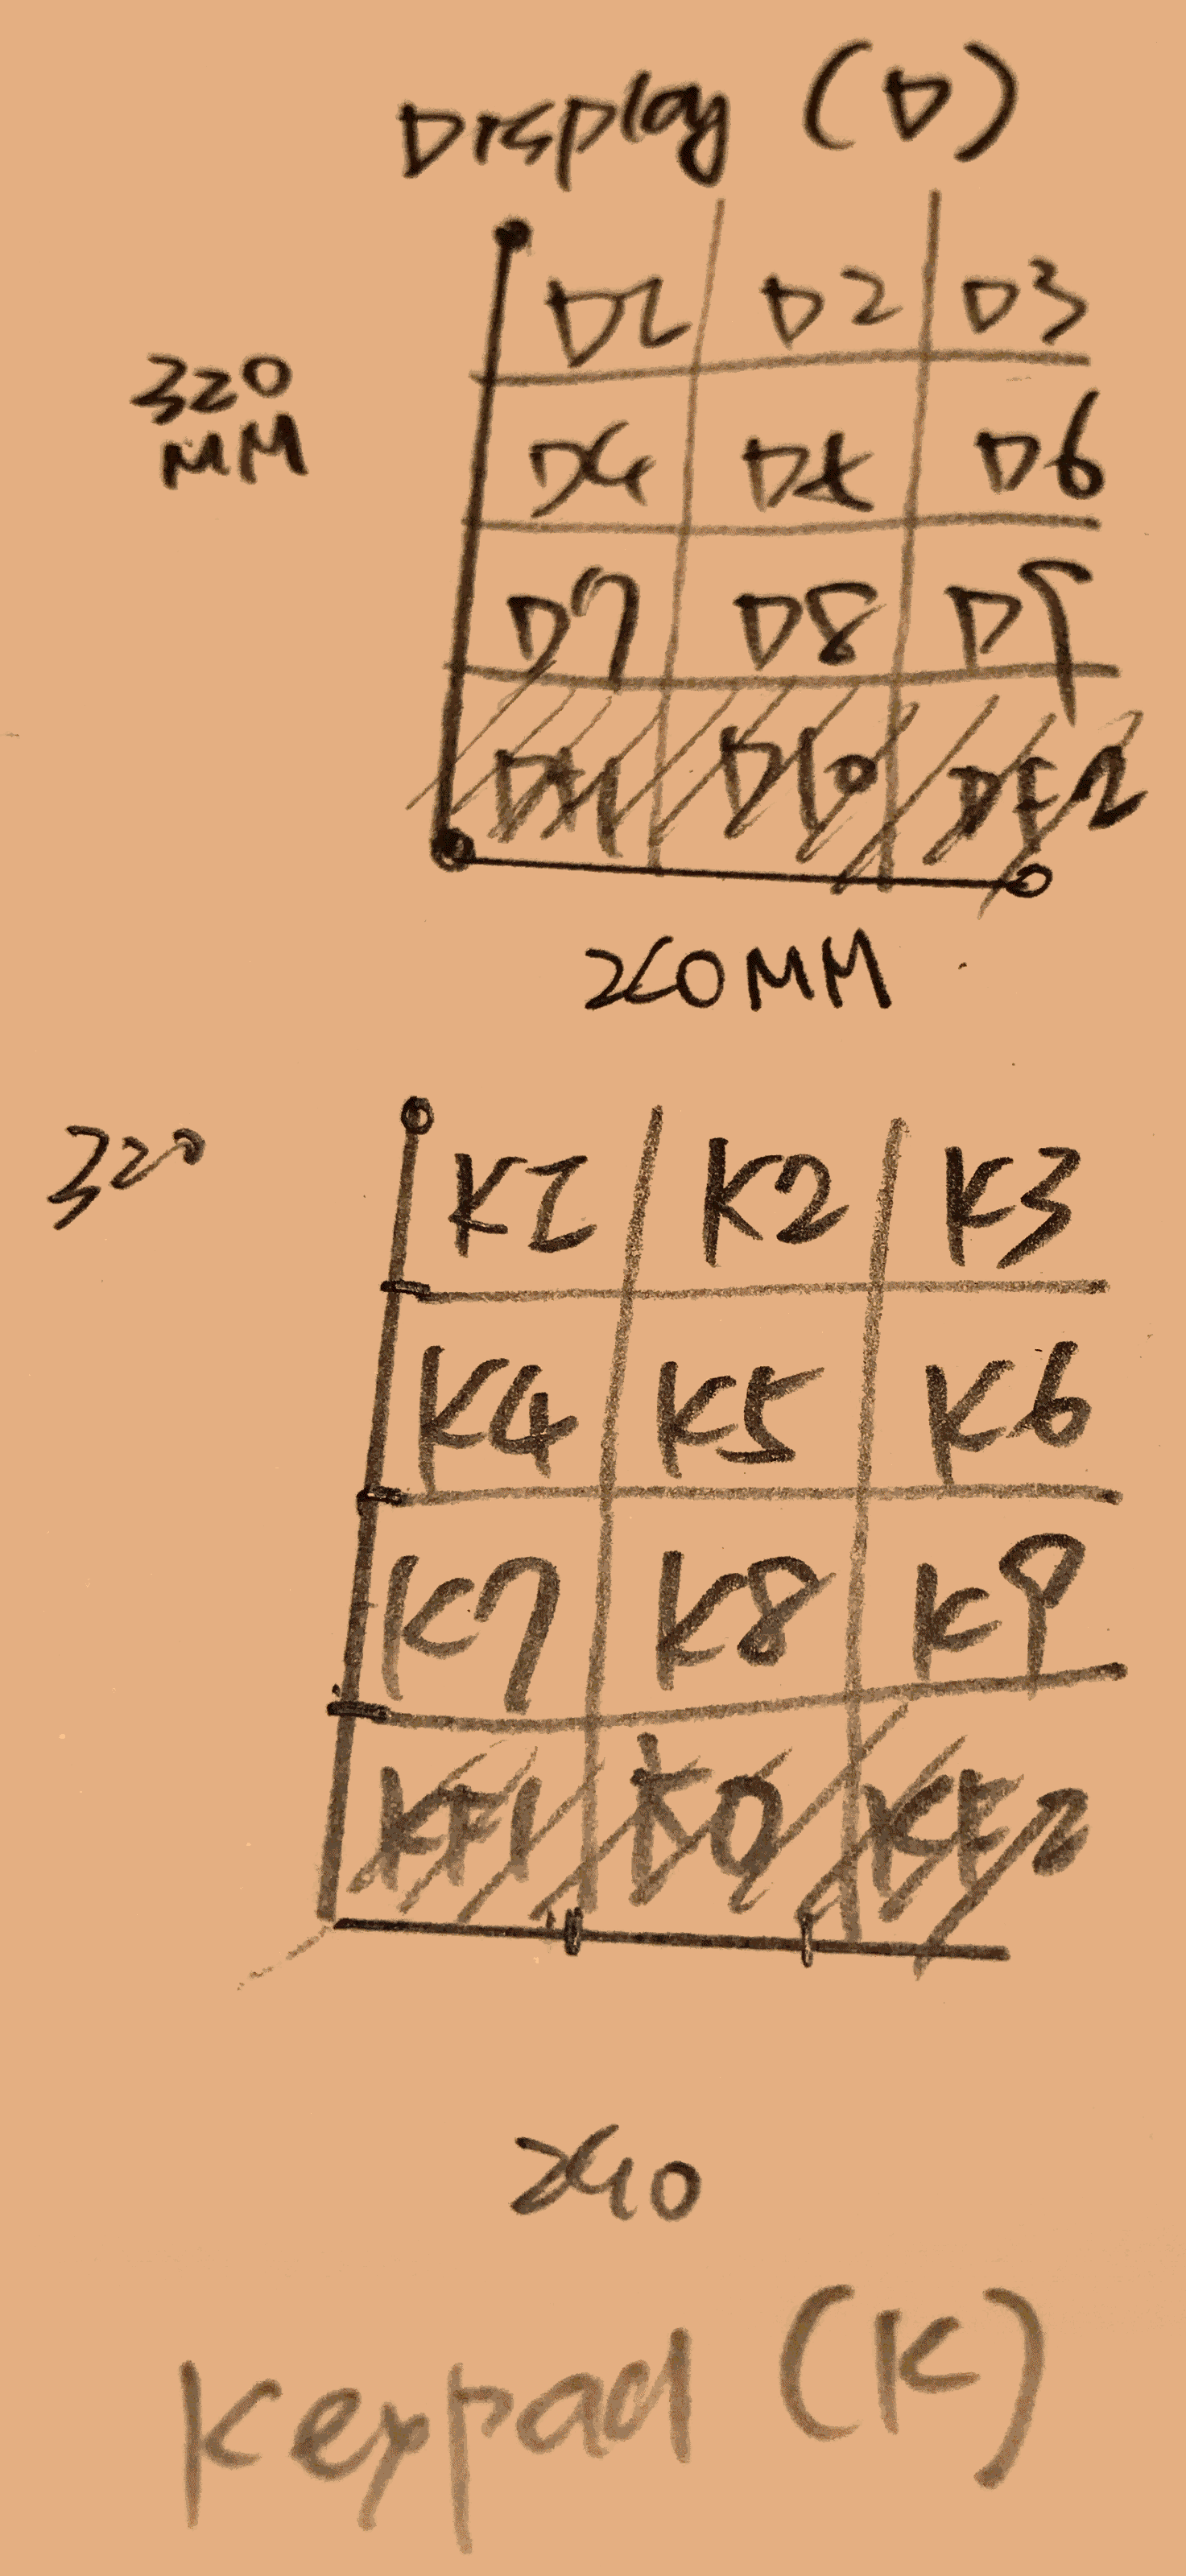 Display (D)
D1 D2 D3
320
MM
D4 D5 D6
D7 D8 D9
DF1 D10 DF2
240MM
320
K1 K2 K3
K4 K5 K6
K7 K8 K9
KF1 K0 KF2
240
Keypad (K)